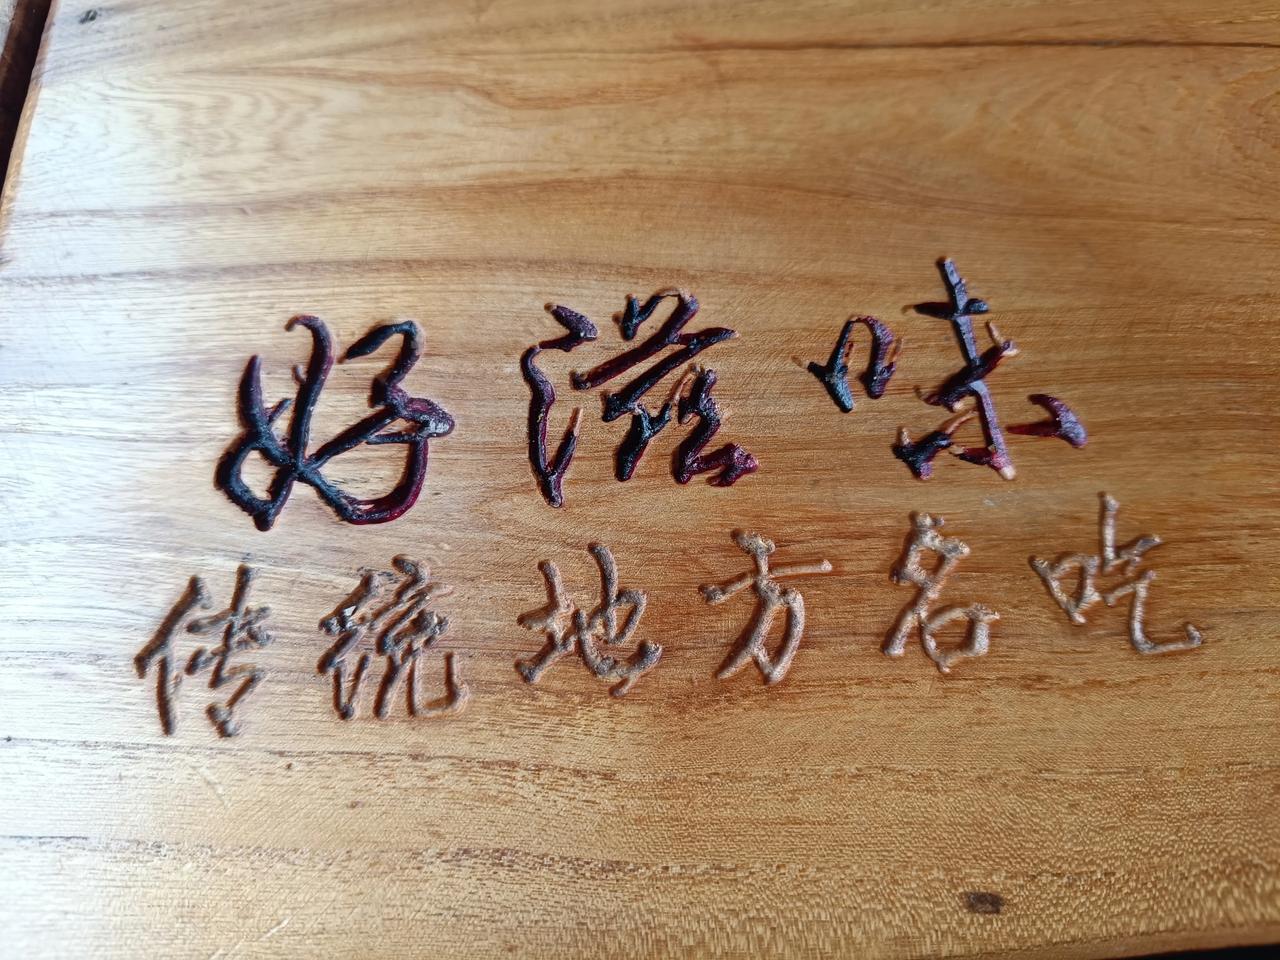 好滋味
传统地方名吃